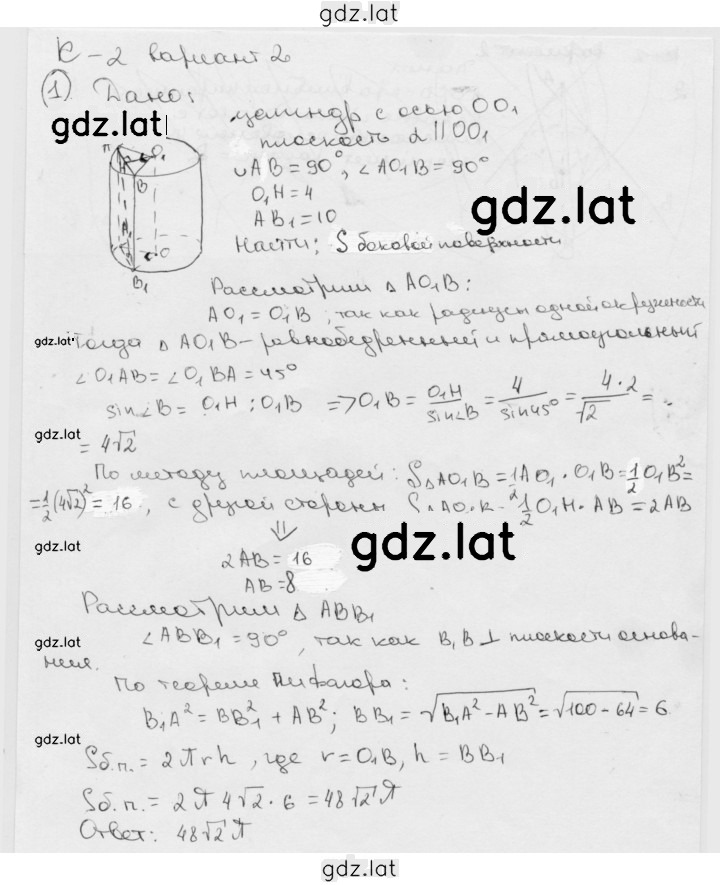 gdz.lat
К-2 вариант 2
1) Дано:
цилиндр с осью OO₁
gdz.lat
плоскость α || OO₁
∪AB = 90°, ∠AO₁B = 90°
O₁H = 4
AB₁ = 10
gdz.lat
Найти: S боковой поверхности
O₁
B
O
B₁
Рассмотрим Δ AO₁B:
AO₁ = O₁B, так как радиусы одной окружности
gdz.lat
Тогда Δ AO₁B - равнобедренный и прямоугольный
∠O₁AB = ∠O₁BA = 45°
sin∠B = O₁H : O₁B => O₁B = O₁H/sin∠B = 4/sin45° = 4·2/√2 =
gdz.lat
= 4√2
По методу площадей: S△AO₁B = 1/2 AO₁ · O₁B = 1/2 O₁B² =
= 1/2 (4√2)² = 16, с другой стороны S△AO₁B = 1/2 O₁H · AB = 2AB
⇓
gdz.lat
gdz.lat
2AB = 16
AB = 8
Рассмотрим Δ ABB₁
∠ABB₁ = 90°, так как B₁B ⊥ плоскости основа-
gdz.lat
ния.
По теореме Пифагора:
B₁A² = BB₁² + AB²; BB₁ = √B₁A² - AB² = √100 - 64 = 6
gdz.lat
Sб.п. = 2πrh, где r = O₁B, h = BB₁
Sб.п. = 2π 4√2 · 6 = 48√2 π
Ответ: 48√2 π
gdz.lat